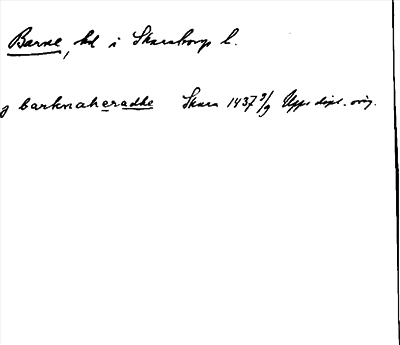 Barne, hd i Skaraborgs l.
j barknaheradhe Skara 1437 9/9 Upps dipl. orig.